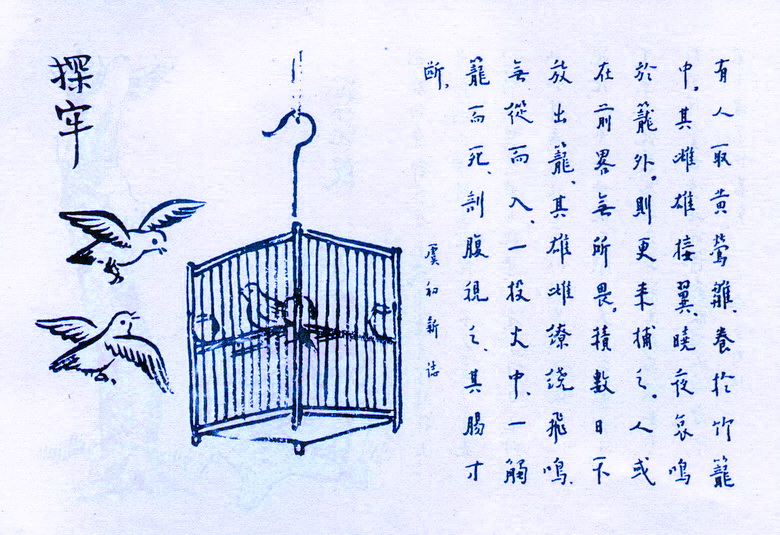 探牢
有人取黄鶯雛、養於竹籠
中。其雌雄接翼、曉夜哀鳴
於籠外。則更来捕之。人或
在前畧無所畏。積數日不
放出籠、其雄雌繚繞飛鳴、
無從而入、一投火中、一觸
籠而死、剖腹視之、其腸寸
断。
虞初新誌